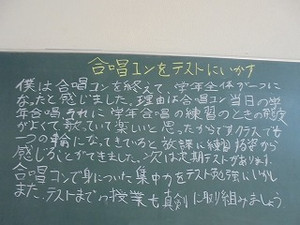 合唱コンをテストにいかす
僕は合唱コンを終えて、学年全体が一つに
なったと感じました。理由は合唱コン当日の学
年合唱、それに学年合唱の練習のときの態度
がよくて、歌っていて楽しいと思ったからです。クラスでも
一つの輪になってきていると放課に練習する姿から
感じることができました。次は定期テストがあります。
合唱コンで身についた集中力をテスト勉強にいかし
また、テストまでの授業も真剣に取り組みましょう。